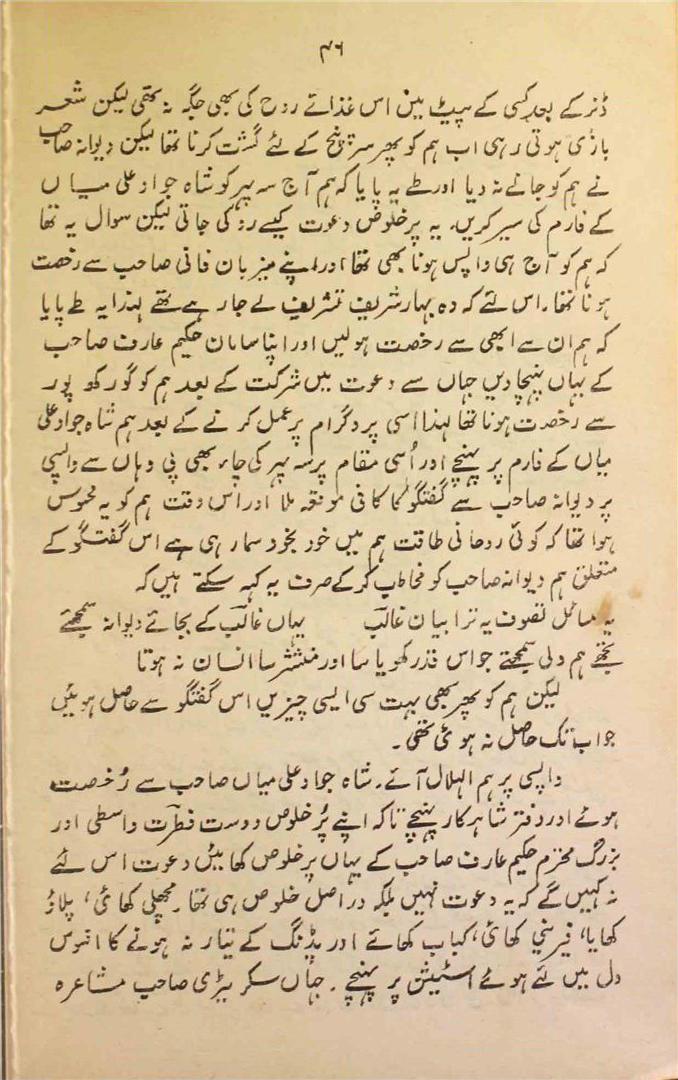 ۴۶
ڈنر کے بعد کسی کے پیٹ میں اس غذائے روح کی بھی جگہ نہ تھی لیکن شعر
بازی ہوتی رہی اب ہم کو پھر سر تفریح کے لئے گشت کرنا تھا لیکن دیوانہ صاحب
نے ہم کو جانے نہ دیا اور طے یہ پایا کہ ہم آج سہ پہر کو شاہ جواد علی میاں
کے فارم کی سیر کریں۔ یہ پر خلوص دعوت کیسے رد کی جاتی لیکن سوال یہ تھا
کہ ہم کو آج ہی واپس ہونا بھی تھا اور اپنے میزبان فانی صاحب سے رخصت
ہونا تھا۔ اس لئے کہ وہ بہار شریف تشریف لے جا رہے تھے لہٰذا یہ طے پایا
کہ ہم ان سے ابھی سے رخصت ہو لیں اور اپنا سامان حکیم عارف صاحب
کے یہاں پہنچا دیں جہاں سے دعوت میں شرکت کے بعد ہم کو گورکھ پور
سے رخصت ہونا تھا لہٰذا اسی پروگرام پر عمل کرنے کے بعد ہم شاہ جواد علی
میاں کے فارم پر پہنچے اور اُسی مقام پر سہ پہر کی چاء بھی پی وہاں سے واپسی
پر دیوانہ صاحب سے گفتگو کا کافی موقعہ ملا اور اس وقت ہم کو یہ محسوس
ہوا تھا کہ کوئی روحانی طاقت ہم میں خود بخود سما رہی ہے اس گفتگو کے
متعلق ہم دیوانہ صاحب کو مخاطب کر کے صرف یہ کہہ سکتے ہیں کہ
یہ مسائل تصوف یہ ترا بیان غالبؔ یہاں غالبؔ کے بجائے دیوانہ سمجھئے
تجھے ہم ولی سمجھتے جو اس قدر کھویا سا اور منتشر سا انسان نہ ہوتا
لیکن ہم کو پھر بھی بہت سی ایسی چیزیں اس گفتگو سے حاصل ہوئیں
جو اب تک حاصل نہ ہوئی تھی۔
واپسی پر ہم الہلال آئے۔ شاہ جواد علی میاں صاحب سے رُخصت
ہوئے اور دفتر شاہکار پہنچے تاکہ اپنے پُر خلوص دوست فطرتؔ واسطی اور
بزرگ محترم حکیم عارف صاحب کے یہاں پر خلوص کھائیں دعوت اس لئے
نہ کہیں گے کہ یہ دعوت نہیں بلکہ دراصل خلوص ہی تھا۔ مچھلی کھائی، پلاؤ
کھایا، فیرنی کھائی، کباب کھائے اور پڈنگ کے تیار نہ ہونے کا افسوس
دل میں لئے ہوئے اسٹیشن پر پہنچے۔ جہاں سکریٹری صاحب مشاعرہ